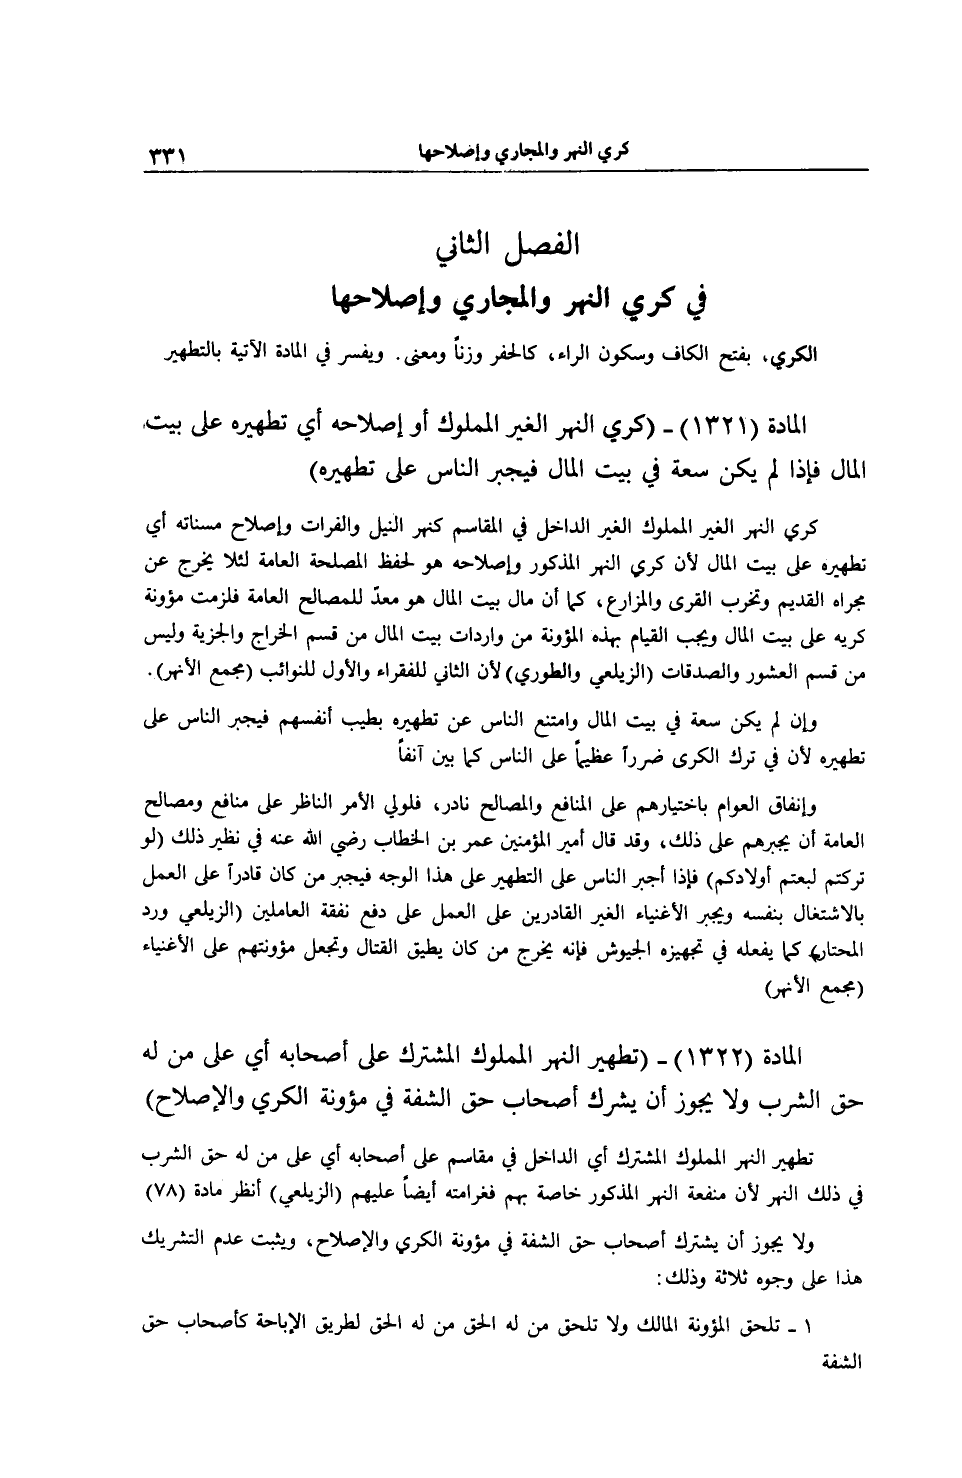 كري النهر والمجاري وإضلاحها ٣٣١
الفصل الثاني
في كري النهر والمجاري وإصلاحها
الكري، بفتح الكاف وسكون الراء، كالحفر وزناً ومعنى. ويفسر في المادة الآتية بالتطهير
المادة (١٣٢١) ـ (كري النهر الغير المملوك أو إصلاحه أي تطهيره على بيت
المال فإذا لم يكن سعة في بيت المال فيجبر الناس على تطهيره)
كري النهر الغير المملوك الغير الداخل في المقاسم كنهر النيل والفرات وإصلاح مسناته أي
تطهيره على بيت المال لأن كري النهر المذكور وإصلاحه هو لحفظ المصلحة العامة لئلا يخرج عن
مجراه القديم وتخرب القرى والمزارع، كما أن مال بيت المال هو معدّ للمصالح العامة فلزمت مؤونة
كريه على بيت المال ويجب القيام بهذه المؤونة من واردات بيت المال من قسم الخراج والجزية وليس
من قسم العشور والصدقات (الزيلعي والطوري) لأن الثاني للفقراء والأول للنوائب (مجمع الأنهر).
وإن لم يكن سعة في بيت المال وامتنع الناس عن تطهيره بطيب أنفسهم فيجبر الناس على
تطهيره لأن في ترك الكرى ضرراً عظيماً على الناس كما بين آنفاً
وإنفاق العوام باختيارهم على المنافع والمصالح نادر، فلولي الأمر الناظر على منافع ومصالح
العامة أن يجبرهم على ذلك، وقد قال أمير المؤمنين عمر بن الخطاب رضي الله عنه في نظير ذلك (لو
تركتم لبعتم أولادكم) فإذا أجبر الناس على التطهير على هذا الوجه فيجبر من كان قادراً على العمل
بالاشتغال بنفسه ويجبر الأغنياء الغير القادرين على العمل على دفع نفقة العاملين (الزيلعي ورد
المحتار) كما يفعله في تجهيزه الجيوش فإنه يخرج من كان يطيق القتال وتجعل مؤونتهم على الأغنياء
(مجمع الأنهر)
المادة (١٣٢٢) ـ (تطهير النهر المملوك المشترك على أصحابه أي على من له
حق الشرب ولا يجوز أن يشرك أصحاب حق الشفة في مؤونة الكري والإصلاح)
تطهير النهر المملوك المشترك أي الداخل في مقاسم على أصحابه أي على من له حق الشرب
في ذلك النهر لأن منفعة النهر المذكور خاصة بهم فغرامته أيضاً عليهم (الزيلعي) أنظر مادة (٧٨)
ولا يجوز أن يشترك أصحاب حق الشفة في مؤونة الكري والإصلاح، ويثبت عدم التشريك
هذا على وجوه ثلاثة وذلك:
١ ـ تلحق المؤونة المالك ولا تلحق من له الحق من له الحق لطريق الإباحة كأصحاب حق
الشفة